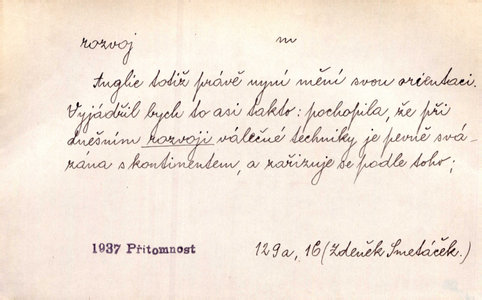 rozvoj m
Anglie totiž právě nyní mění svou orientaci.
Vyjádřil bych to asi takto: pochopila, že při
dnešním rozvoji válečné techniky je pevně svá-
zána s kontinentem, a zařizuje se podle toho;
1937 Přítomnost 129a, 16 (Zdeněk Smetáček.)